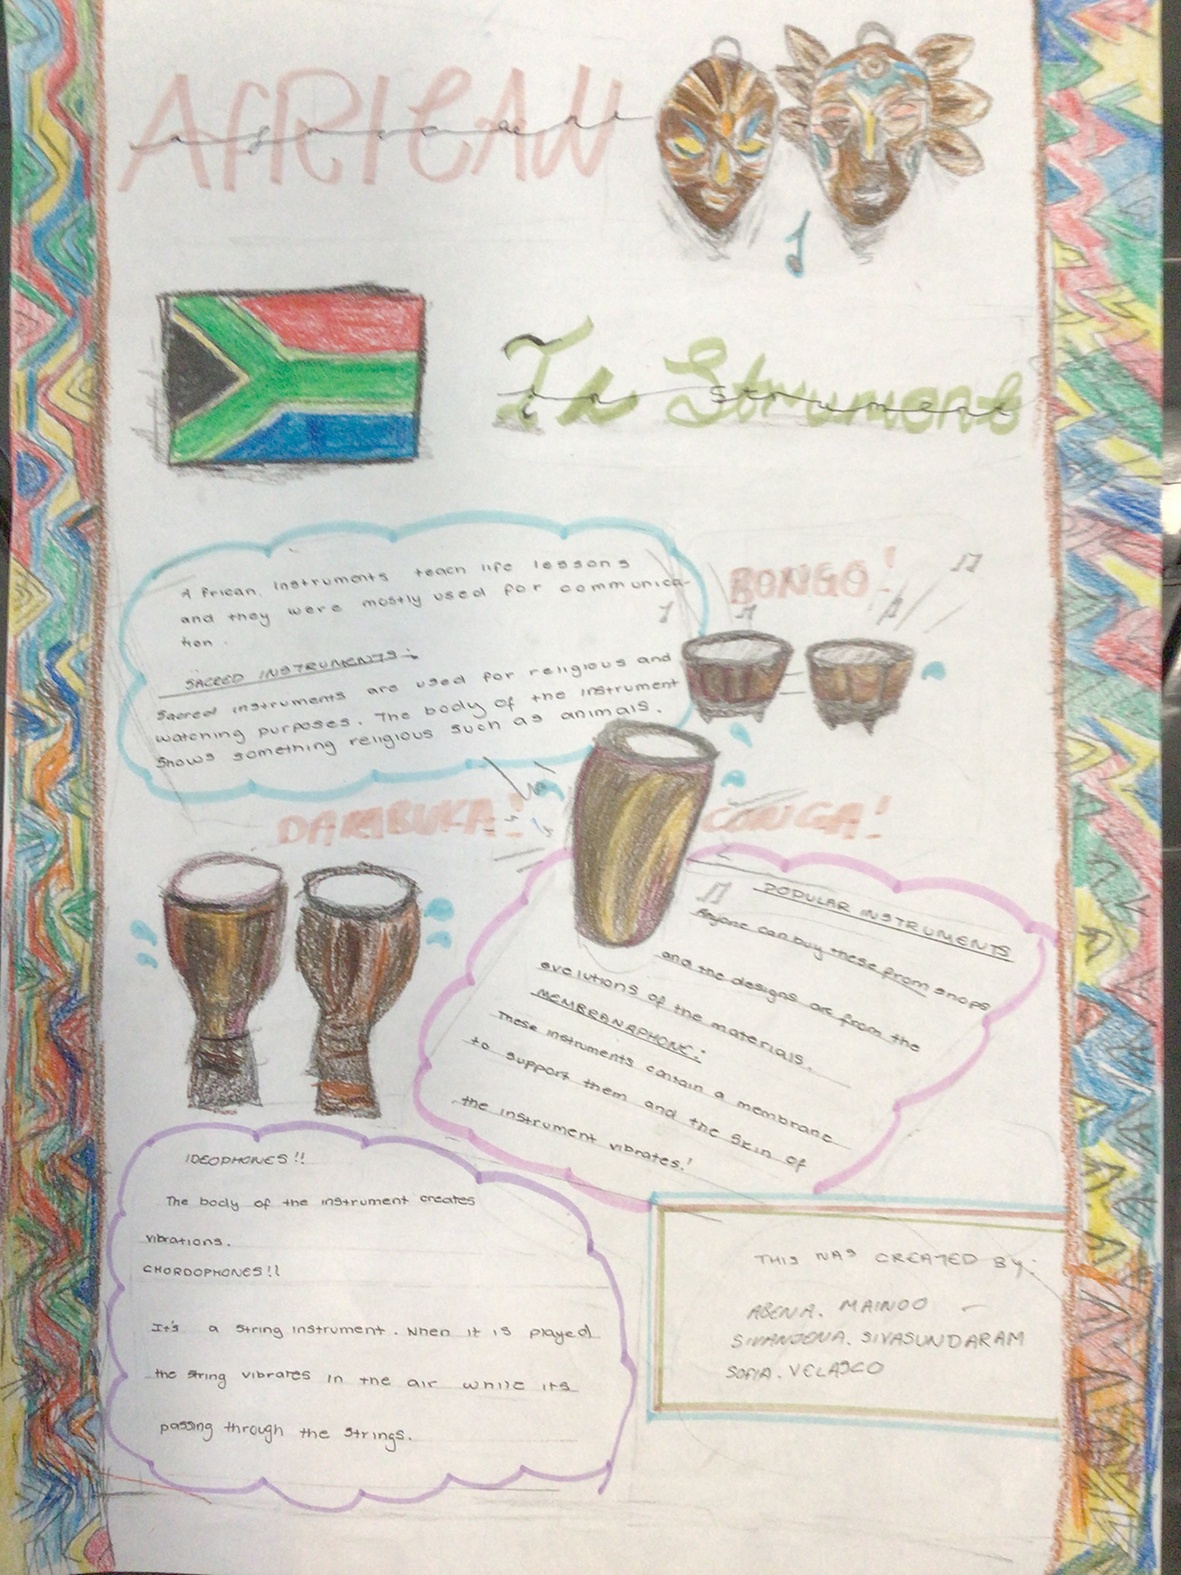 AFRICAN
african
InStrument
instrument
African instruments teach life lessons
and they were mostly used for communica-
tion.
SACRED INSTRUMENTS:
Sacred instruments are used for religious and
watching purposes. The body of the instrument
shows something religious such as animals.
BONGO!
DARBUKA!
CONGA!
POPULAR INSTRUMENTS
Anyone can buy these from shops
and the designs are from the
evolutions of the materials.
MEMBRANAPHONE:
These instruments contain a membrane
to support them and the skin of
the instrument vibrates!
IDEOPHONES!!
The body of the instrument creates
vibrations.
CHORDOPHONES!!
It's a string instrument. When it is played
the string vibrates in the air while its
passing through the strings.
THIS WAS CREATED BY:
ABENA. MAINOO
SIVANJENA. SIVASUNDARAM
SOFIA. VELASCO